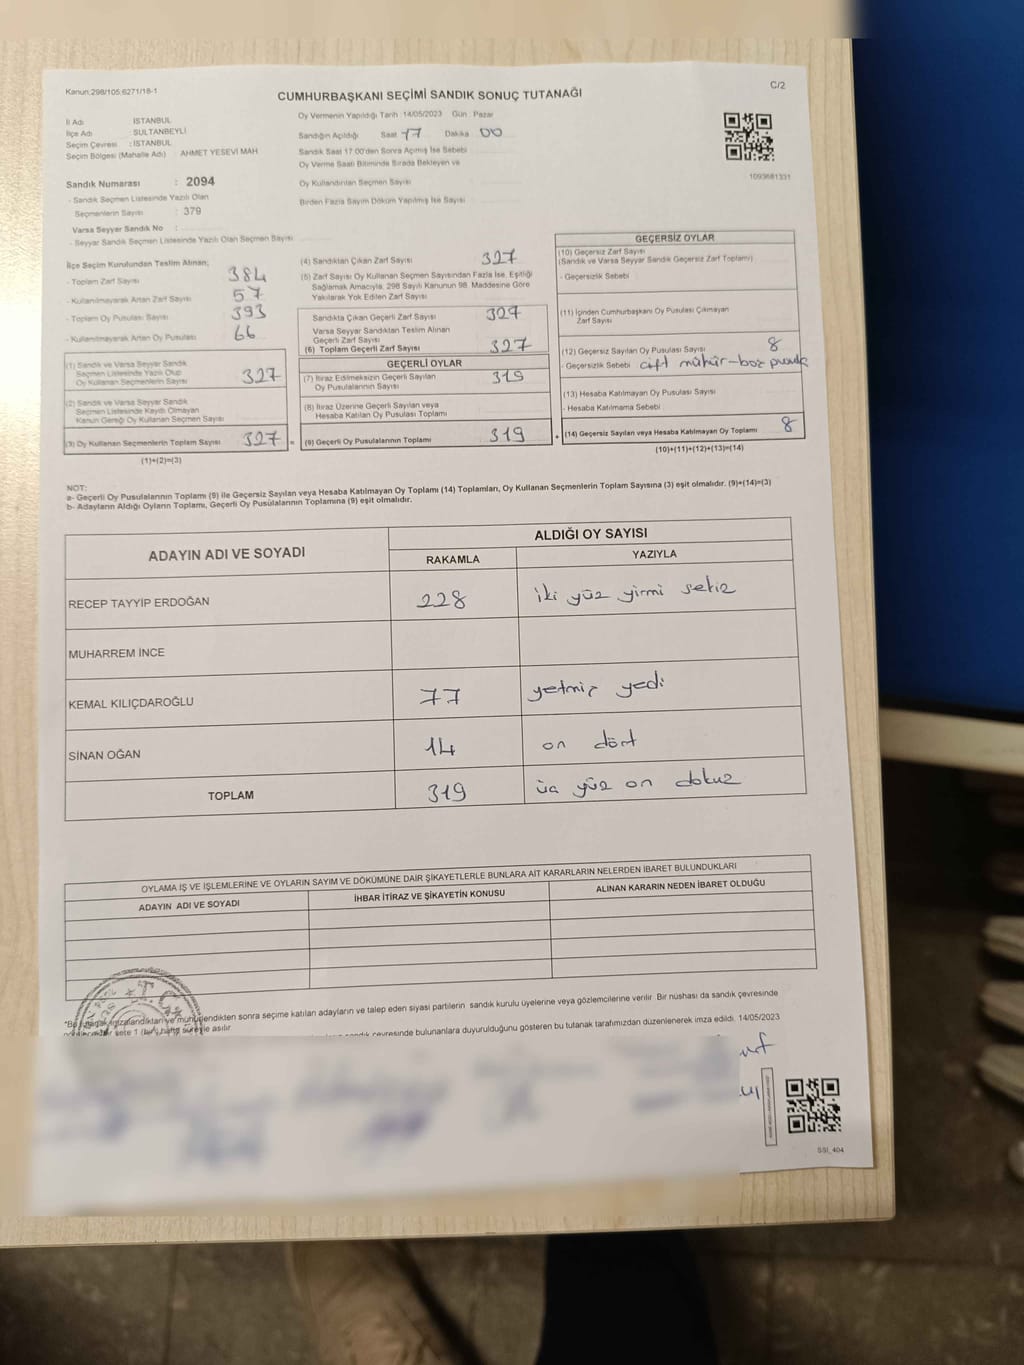 Kanun:298/105;6271/18-1
C/2
CUMHURBAŞKANI SEÇİMİ SANDIK SONUÇ TUTANAĞI
İl Adı : İSTANBUL
İlçe Adı : SULTANBEYLİ
Seçim Çevresi : İSTANBUL
Seçim Bölgesi (Mahalle Adı) : AHMET YESEVİ MAH
Sandık Numarası : 2094
- Sandık Seçmen Listesinde Yazılı Olan
Seçmenlerin Sayısı : 379
Varsa Seyyar Sandık No :
- Seyyar Sandık Seçmen Listesinde Yazılı Olan Seçmen Sayısı
Oy Vermenin Yapıldığı Tarih 14/05/2023 Gün Pazar
Sandığın Açıldığı Saat 17 Dakika 00
Sandık Saat 17.00'den Sonra Açılmış İse Sebebi
Oy Verme Saati Bitiminde Sırada Bekleyen ve
Oy Kullandırılan Seçmen Sayısı
Birden Fazla Sayım Döküm Yapılmış İse Sayısı
1093681331
İlçe Seçim Kurulundan Teslim Alınan;
- Toplam Zarf Sayısı 384
- Kullanılmayarak Artan Zarf Sayısı 57
- Toplam Oy Pusulası Sayısı 393
- Kullanılmayarak Artan Oy Pusulası 66
(1) Sandık ve Varsa Seyyar Sandık
Seçmen Listesinde Yazılı Olup
Oy Kullanan Seçmenlerin Sayısı 327
(2) Sandık ve Varsa Seyyar Sandık
Seçmen Listesinde Kaydı Olmayan
Kanun Gereği Oy Kullanan Seçmen Sayısı
(3) Oy Kullanan Seçmenlerin Toplam Sayısı 327 =
(1)+(2)=(3)
(4) Sandıktan Çıkan Zarf Sayısı 327
(5) Zarf Sayısı Oy Kullanan Seçmen Sayısından Fazla İse, Eşitliği
Sağlamak Amacıyla, 298 Sayılı Kanunun 98. Maddesine Göre
Yakılarak Yok Edilen Zarf Sayısı
Sandıkta Çıkan Geçerli Zarf Sayısı 327
Varsa Seyyar Sandıktan Teslim Alınan
Geçerli Zarf Sayısı
(6) Toplam Geçerli Zarf Sayısı 327
GEÇERLİ OYLAR
(7) İtiraz Edilmeksizin Geçerli Sayılan
Oy Pusulalarının Sayısı 319
(8) İtiraz Üzerine Geçerli Sayılan veya
Hesaba Katılan Oy Pusulası Toplamı
(9) Geçerli Oy Pusulalarının Toplamı 319 +
GEÇERSİZ OYLAR
(10) Geçersiz Zarf Sayısı
(Sandık ve Varsa Seyyar Sandık Geçersiz Zarf Toplamı)
- Geçersizlik Sebebi
(11) İçinden Cumhurbaşkanı Oy Pusulası Çıkmayan
Zarf Sayısı
(12) Geçersiz Sayılan Oy Pusulası Sayısı 8
- Geçersizlik Sebebi çift mühür-boş
(13) Hesaba Katılmayan Oy Pusulası Sayısı
- Hesaba Katılmama Sebebi
(14) Geçersiz Sayılan veya Hesaba Katılmayan Oy Toplamı 8
(10)+(11)+(12)+(13)=(14)
NOT:
a- Geçerli Oy Pusulalarının Toplamı (9) ile Geçersiz Sayılan veya Hesaba Katılmayan Oy Toplamı (14) Toplamları, Oy Kullanan Seçmenlerin Toplam Sayısına (3) eşit olmalıdır. (9)+(14)=(3)
b- Adayların Aldığı Oyların Toplamı, Geçerli Oy Pusulalarının Toplamına (9) eşit olmalıdır.
ADAYIN ADI VE SOYADI
ALDIĞI OY SAYISI
RAKAMLA YAZIYLA
RECEP TAYYİP ERDOĞAN 228 iki yüz yirmi sekiz
MUHARREM İNCE
KEMAL KILIÇDAROĞLU 77 yetmiş yedi
SİNAN OĞAN 14 on dört
TOPLAM 319 üç yüz on dokuz
OYLAMA İŞ VE İŞLEMLERİNE VE OYLARIN SAYIM VE DÖKÜMÜNE DAİR ŞİKAYETLERLE BUNLARA AİT KARARLARIN NELERDEN İBARET BULUNDUKLARI
ADAYIN ADI VE SOYADI İHBAR İTİRAZ VE ŞİKAYETİN KONUSU ALINAN KARARIN NEDEN İBARET OLDUĞU
*Bu tutanak imzalandıktan ve mühürlendikten sonra seçime katılan adayların ve talep eden siyasi partilerin sandık kurulu üyelerine veya gözlemcilerine verilir. Bir nüshası da sandık çevresinde
1 (bir) hafta süreyle asılır.
sandık çevresinde bulunanlara duyurulduğunu gösteren bu tutanak tarafımızdan düzenlenerek imza edildi. 14/05/2023
SSİ_404